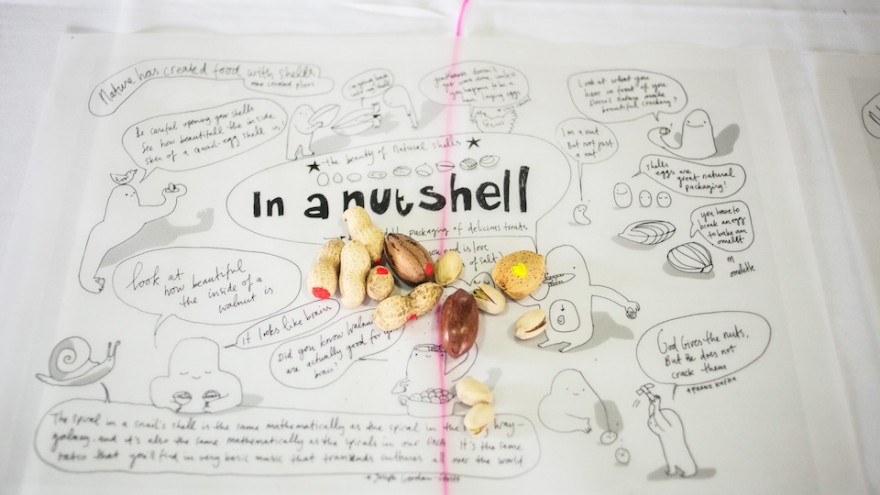 Nature has created food with shells,
Be careful opening you shells
See how beautifull the inside
shell of a quail-egg shell is!
Look at what you
have in front of you
Doesn't nature made
beautiful crockery?
I'm a nut
But not just
a nut
shells
eggs are
great natural
packaging!
you have to
break an egg
to bake an
omelett
omelette
the beauty of natural shells
In a nutshell
packaging of delicious treats
is love
of salt)
look at
how beautiful
the inside of a
walnut is
it looks like brains
Did you know walnuts
are actually good for your
brain?
God Gives the nuts,
But He does not
crack them
Franz Kafka
The spiral in a snail's shell is the same mathematically as the spiral in the Milky Way-
galaxy, and it's also the same mathematically as the spirals in our DNA. It's the same
ratio that you'll find in very basic music that transcends cultures all over the world
Joseph Gordon-Levitt